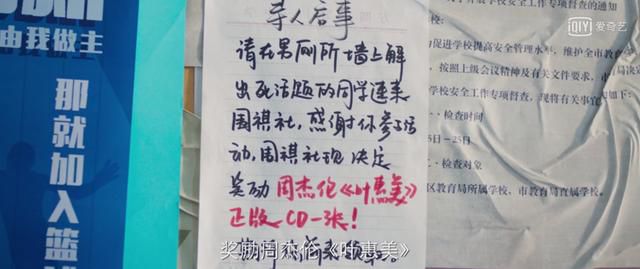 由我做主
那就加入篮
寻人启事
请在男厕所墙上解
出死活题的同学速来
围棋社，感谢你参与活
动，围棋社现决定
奖励周杰伦《叶惠美》
正版CD一张！
奖励周杰伦《叶惠美》
学校安全工作专项督查的通知
校：
促进学校提高安全管理水平，维护全市教
按照上级会议精神及有关文件要求，市
学校安全工作专项督查，现将有关事宜
一·检查时间
5日－25日
二·检查对象
区教育局所属学校，市教育局直属学校。
iQIYI 爱奇艺